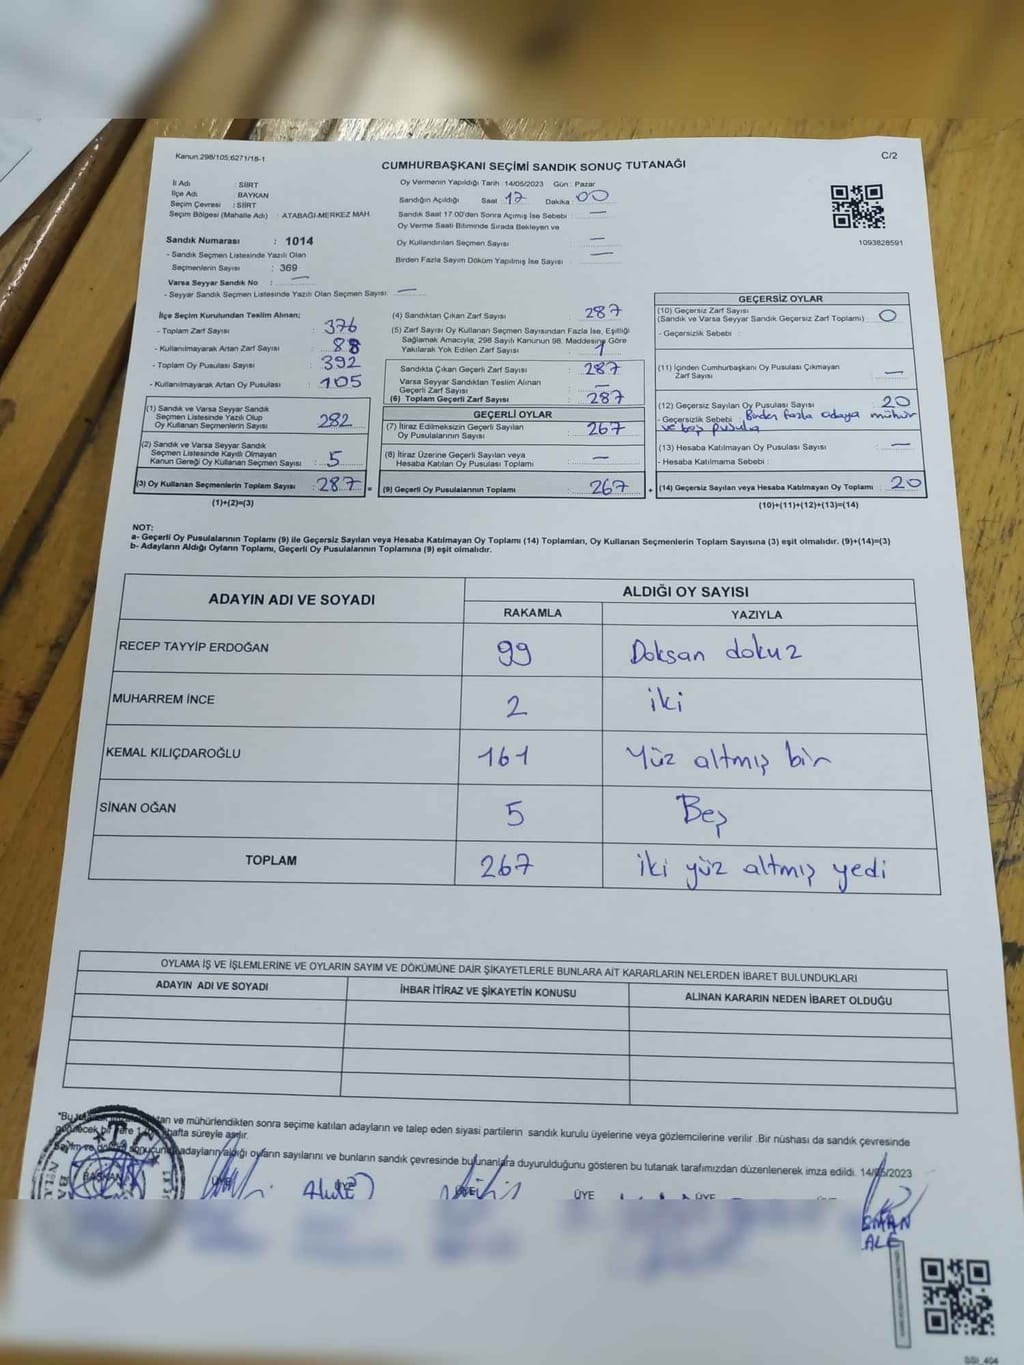 Kanun.298/105;6271/18-1
C/2
CUMHURBAŞKANI SEÇİMİ SANDIK SONUÇ TUTANAĞI
İl Adı : SİİRT
İlçe Adı : BAYKAN
Seçim Çevresi : SİİRT
Seçim Bölgesi (Mahalle Adı) : ATABAĞI-MERKEZ MAH.
Sandık Numarası : 1014
- Sandık Seçmen Listesinde Yazılı Olan
Seçmenlerin Sayısı : 369
Varsa Seyyar Sandık No : —
- Seyyar Sandık Seçmen Listesinde Yazılı Olan Seçmen Sayısı: —
Oy Vermenin Yapıldığı Tarih : 14/05/2023 Gün : Pazar
Sandığın Açıldığı Saat 17 Dakika : 00
Sandık Saat 17.00'den Sonra Açılmış İse Sebebi : —
Oy Verme Saati Bitiminde Sırada Bekleyen ve
Oy Kullandırılan Seçmen Sayısı : —
Birden Fazla Sayım Döküm Yapılmış İse Sayısı : —
1093828591
İlçe Seçim Kurulundan Teslim Alınan;
- Toplam Zarf Sayısı : 376
- Kullanılmayarak Artan Zarf Sayısı : 88
- Toplam Oy Pusulası Sayısı : 392
- Kullanılmayarak Artan Oy Pusulası : 105
(1) Sandık ve Varsa Seyyar Sandık
Seçmen Listesinde Yazılı Olup
Oy Kullanan Seçmenlerin Sayısı : 282
(2) Sandık ve Varsa Seyyar Sandık
Seçmen Listesinde Kayıtlı Olmayan
Kanun Gereği Oy Kullanan Seçmen Sayısı : 5
(3) Oy Kullanan Seçmenlerin Toplam Sayısı : 287
(1)+(2)=(3)
(4) Sandıktan Çıkan Zarf Sayısı : 287
(5) Zarf Sayısı Oy Kullanan Seçmen Sayısından Fazla İse, Eşitliği
Sağlamak Amacıyla; 298 Sayılı Kanunun 98. Maddesine Göre
Yakılarak Yok Edilen Zarf Sayısı : 1
Sandıkta Çıkan Geçerli Zarf Sayısı : 287
Varsa Seyyar Sandıktan Teslim Alınan
Geçerli Zarf Sayısı : —
(6) Toplam Geçerli Zarf Sayısı : 287
GEÇERLİ OYLAR
(7) İtiraz Edilmeksizin Geçerli Sayılan
Oy Pusulalarının Sayısı : 267
(8) İtiraz Üzerine Geçerli Sayılan veya
Hesaba Katılan Oy Pusulası Toplamı : —
= (9) Geçerli Oy Pusulalarının Toplamı : 267
GEÇERSİZ OYLAR
(10) Geçersiz Zarf Sayısı
(Sandık ve Varsa Seyyar Sandık Geçersiz Zarf Toplamı) : 0
- Geçersizlik Sebebi :
(11) İçinden Cumhurbaşkanı Oy Pusulası Çıkmayan
Zarf Sayısı : —
(12) Geçersiz Sayılan Oy Pusulası Sayısı : 20
- Geçersizlik Sebebi : Birden fazla adaya mühür
ve boş pusula
(13) Hesaba Katılmayan Oy Pusulası Sayısı : —
- Hesaba Katılmama Sebebi :
+ (14) Geçersiz Sayılan veya Hesaba Katılmayan Oy Toplamı : 20
(10)+(11)+(12)+(13)=(14)
NOT:
a- Geçerli Oy Pusulalarının Toplamı (9) ile Geçersiz Sayılan veya Hesaba Katılmayan Oy Toplamı (14) Toplamları, Oy Kullanan Seçmenlerin Toplam Sayısına (3) eşit olmalıdır. (9)+(14)=(3)
b- Adayların Aldığı Oyların Toplamı, Geçerli Oy Pusulalarının Toplamına (9) eşit olmalıdır.
ADAYIN ADI VE SOYADI ALDIĞI OY SAYISI
RAKAMLA YAZIYLA
RECEP TAYYİP ERDOĞAN 99 Doksan dokuz
MUHARREM İNCE 2 iki
KEMAL KILIÇDAROĞLU 161 Yüz altmış bir
SİNAN OĞAN 5 Beş
TOPLAM 267 iki yüz altmış yedi
OYLAMA İŞ VE İŞLEMLERİNE VE OYLARIN SAYIM VE DÖKÜMÜNE DAİR ŞİKAYETLERLE BUNLARA AİT KARARLARIN NELERDEN İBARET BULUNDUKLARI
ADAYIN ADI VE SOYADI İHBAR İTİRAZ VE ŞİKAYETİN KONUSU ALINAN KARARIN NEDEN İBARET OLDUĞU
*Bu ve mühürlendikten sonra seçime katılan adayların ve talep eden siyasi partilerin sandık kurulu üyelerine veya gözlemcilerine verilir .Bir nüshası da sandık çevresinde
hafta süreyle asılır.
Sayım ve adayların aldığı oyların sayılarını ve bunların sandık çevresinde bulunanlara duyurulduğunu gösteren bu tutanak tarafımızdan düzenlenerek imza edildi. 14/05/2023
BAŞKAN ÜYE ÜYE